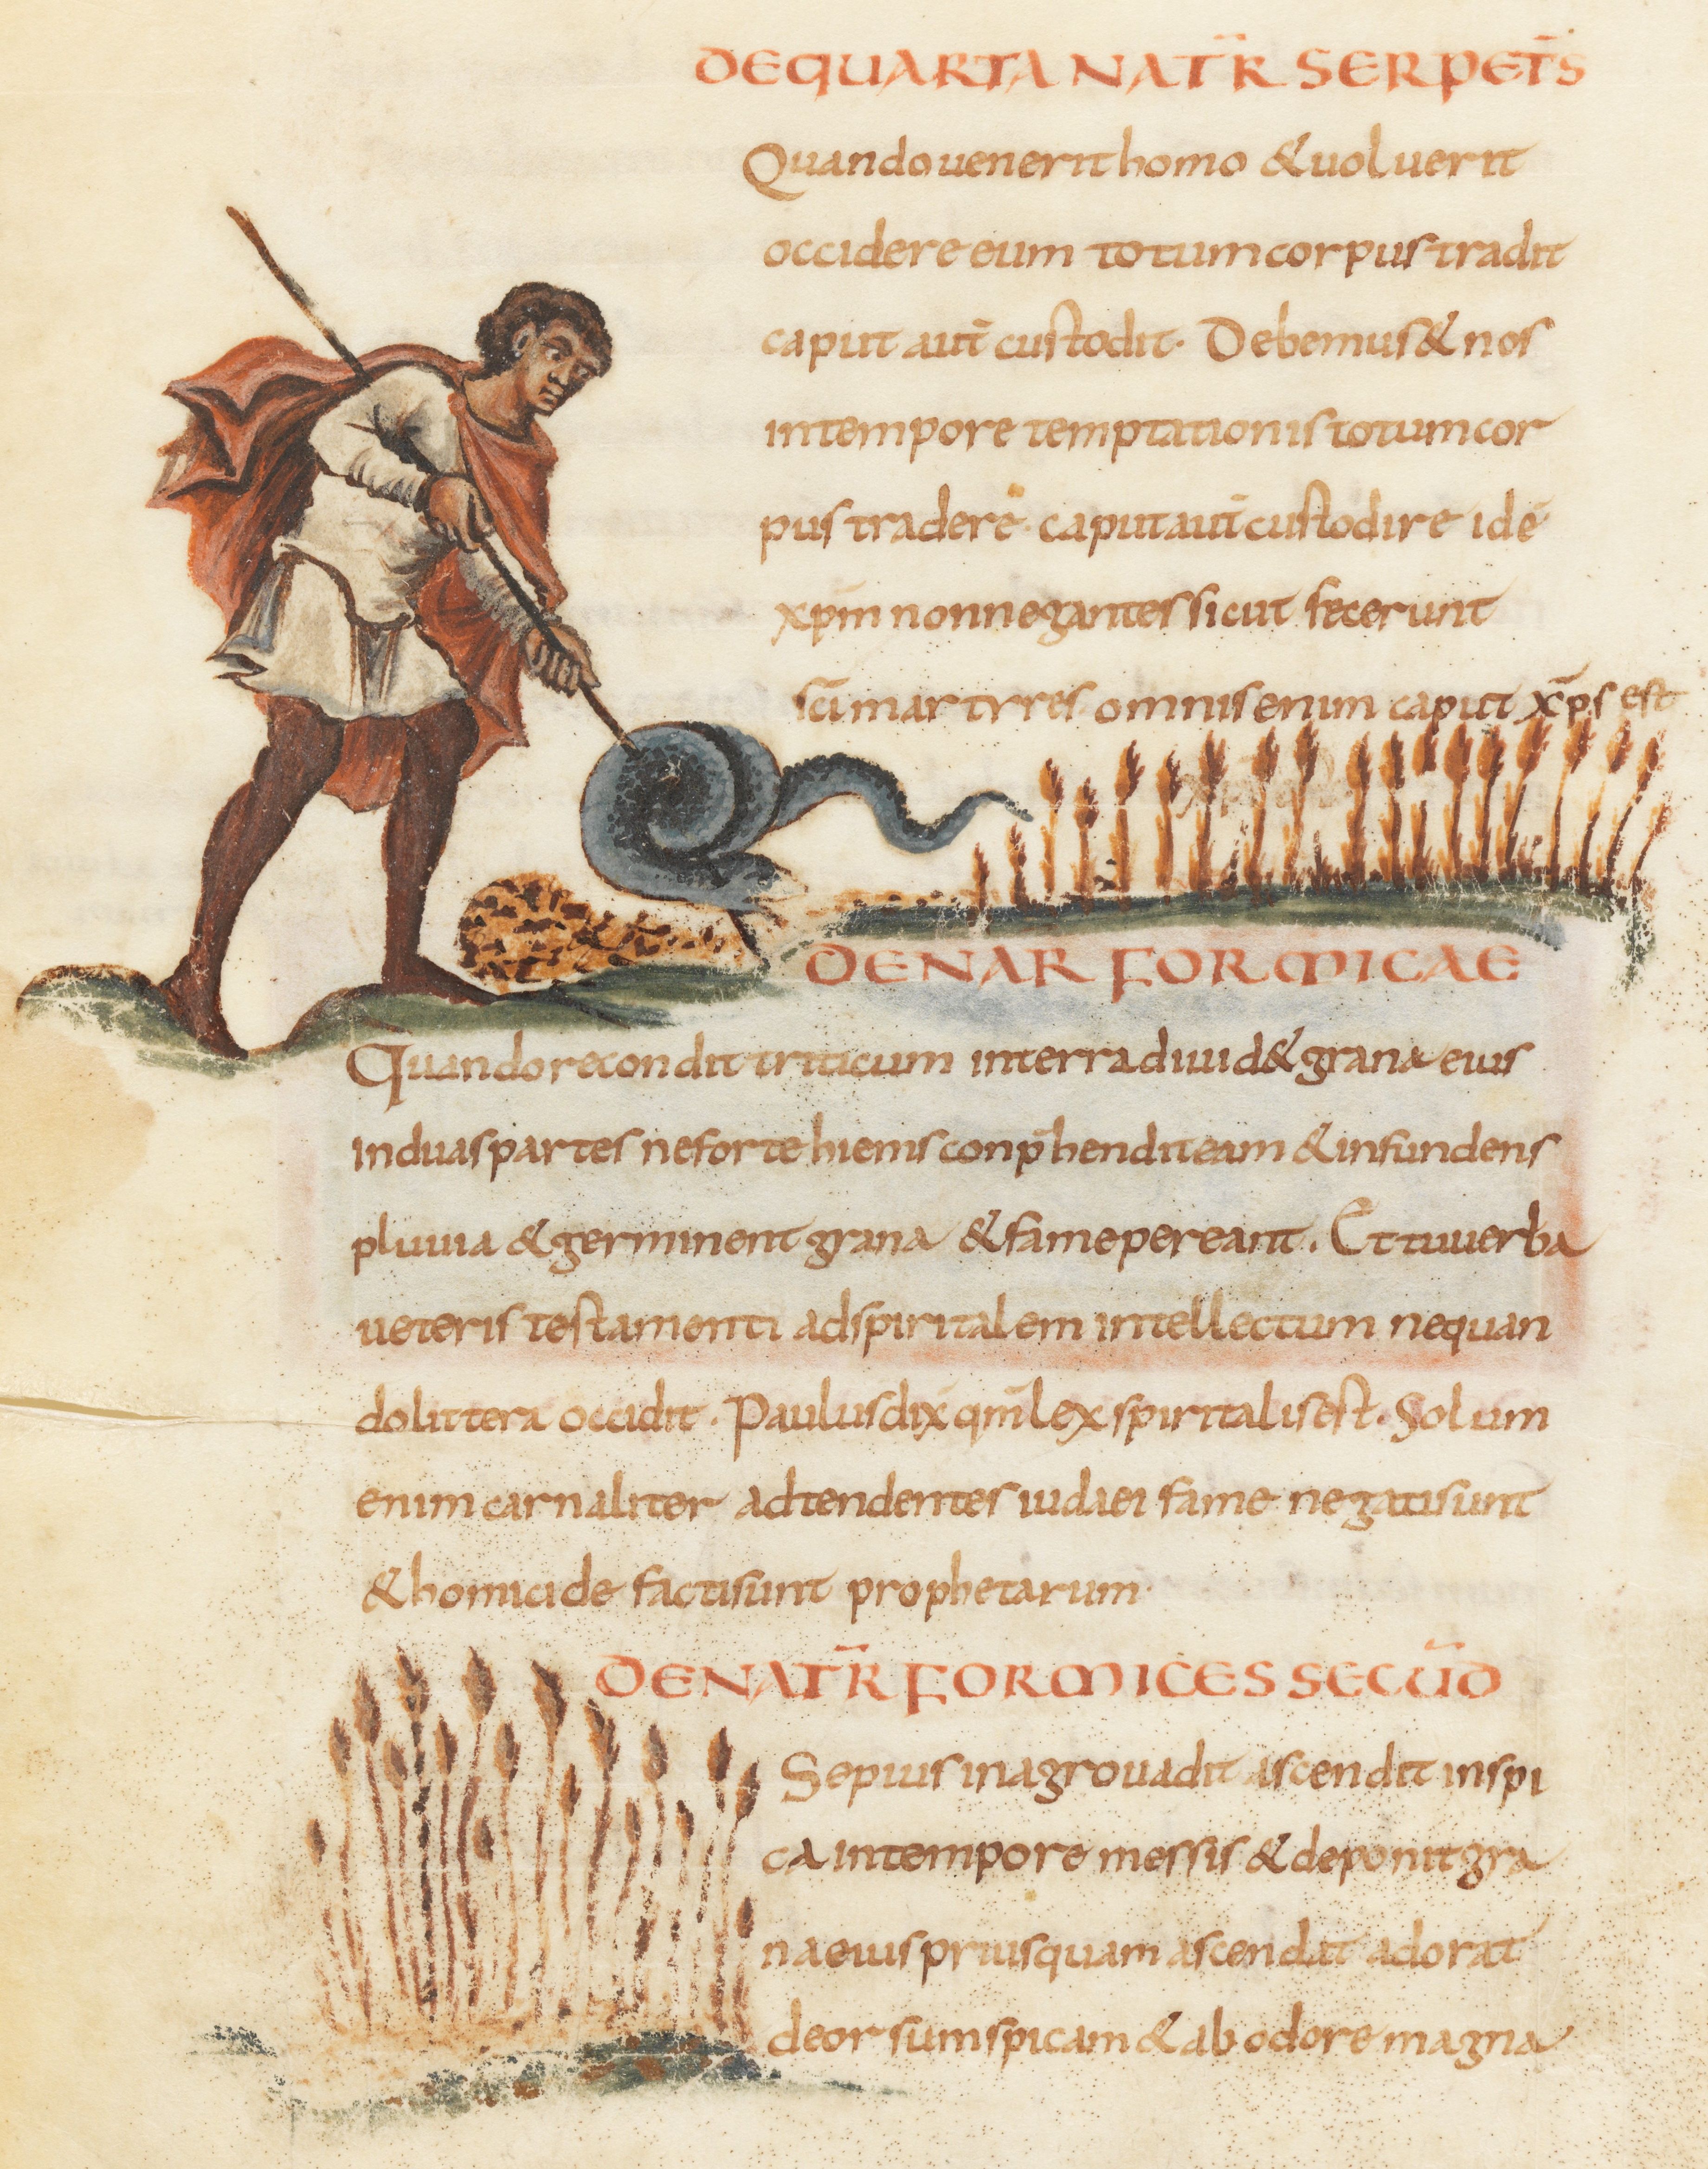 DE QUARTA NAT̄R SERPET̄S
Quando uenerit homo & uoluerit
occidere eum totum corpus tradit
caput aut̄ custodit· Debemus & nos
in tempore temptationis totum cor
pus tradere· caput aut̄ custodire idē
xp̄m non negantes sicut fecerunt
sc̄i martyres· omnis enim caput xp̄s est
DE NAR FORMICAE
Quando recondit triticum in terra diuid& grana eius
in duas partes ne forte hiems conp̄hendit eam & infundens
pluuia & germinent grana & fame pereant. Et tu uerba
ueteris testamenti ad spiritalem intellectum ne quan
do littera occidit. Paulus dix̄ qm̄ lex spiritalis est. Solum
enim carnaliter adtendentes iudaei fame negati sunt
& homicide facti sunt prophetarum·
DE NAT̄R FORMICES SECŪD
Sepius in agro uadit ascendit in spi
ca in tempore messis & deponit gra
na eius prius quam ascendat adorat
deorsum spicam & ab odore magna